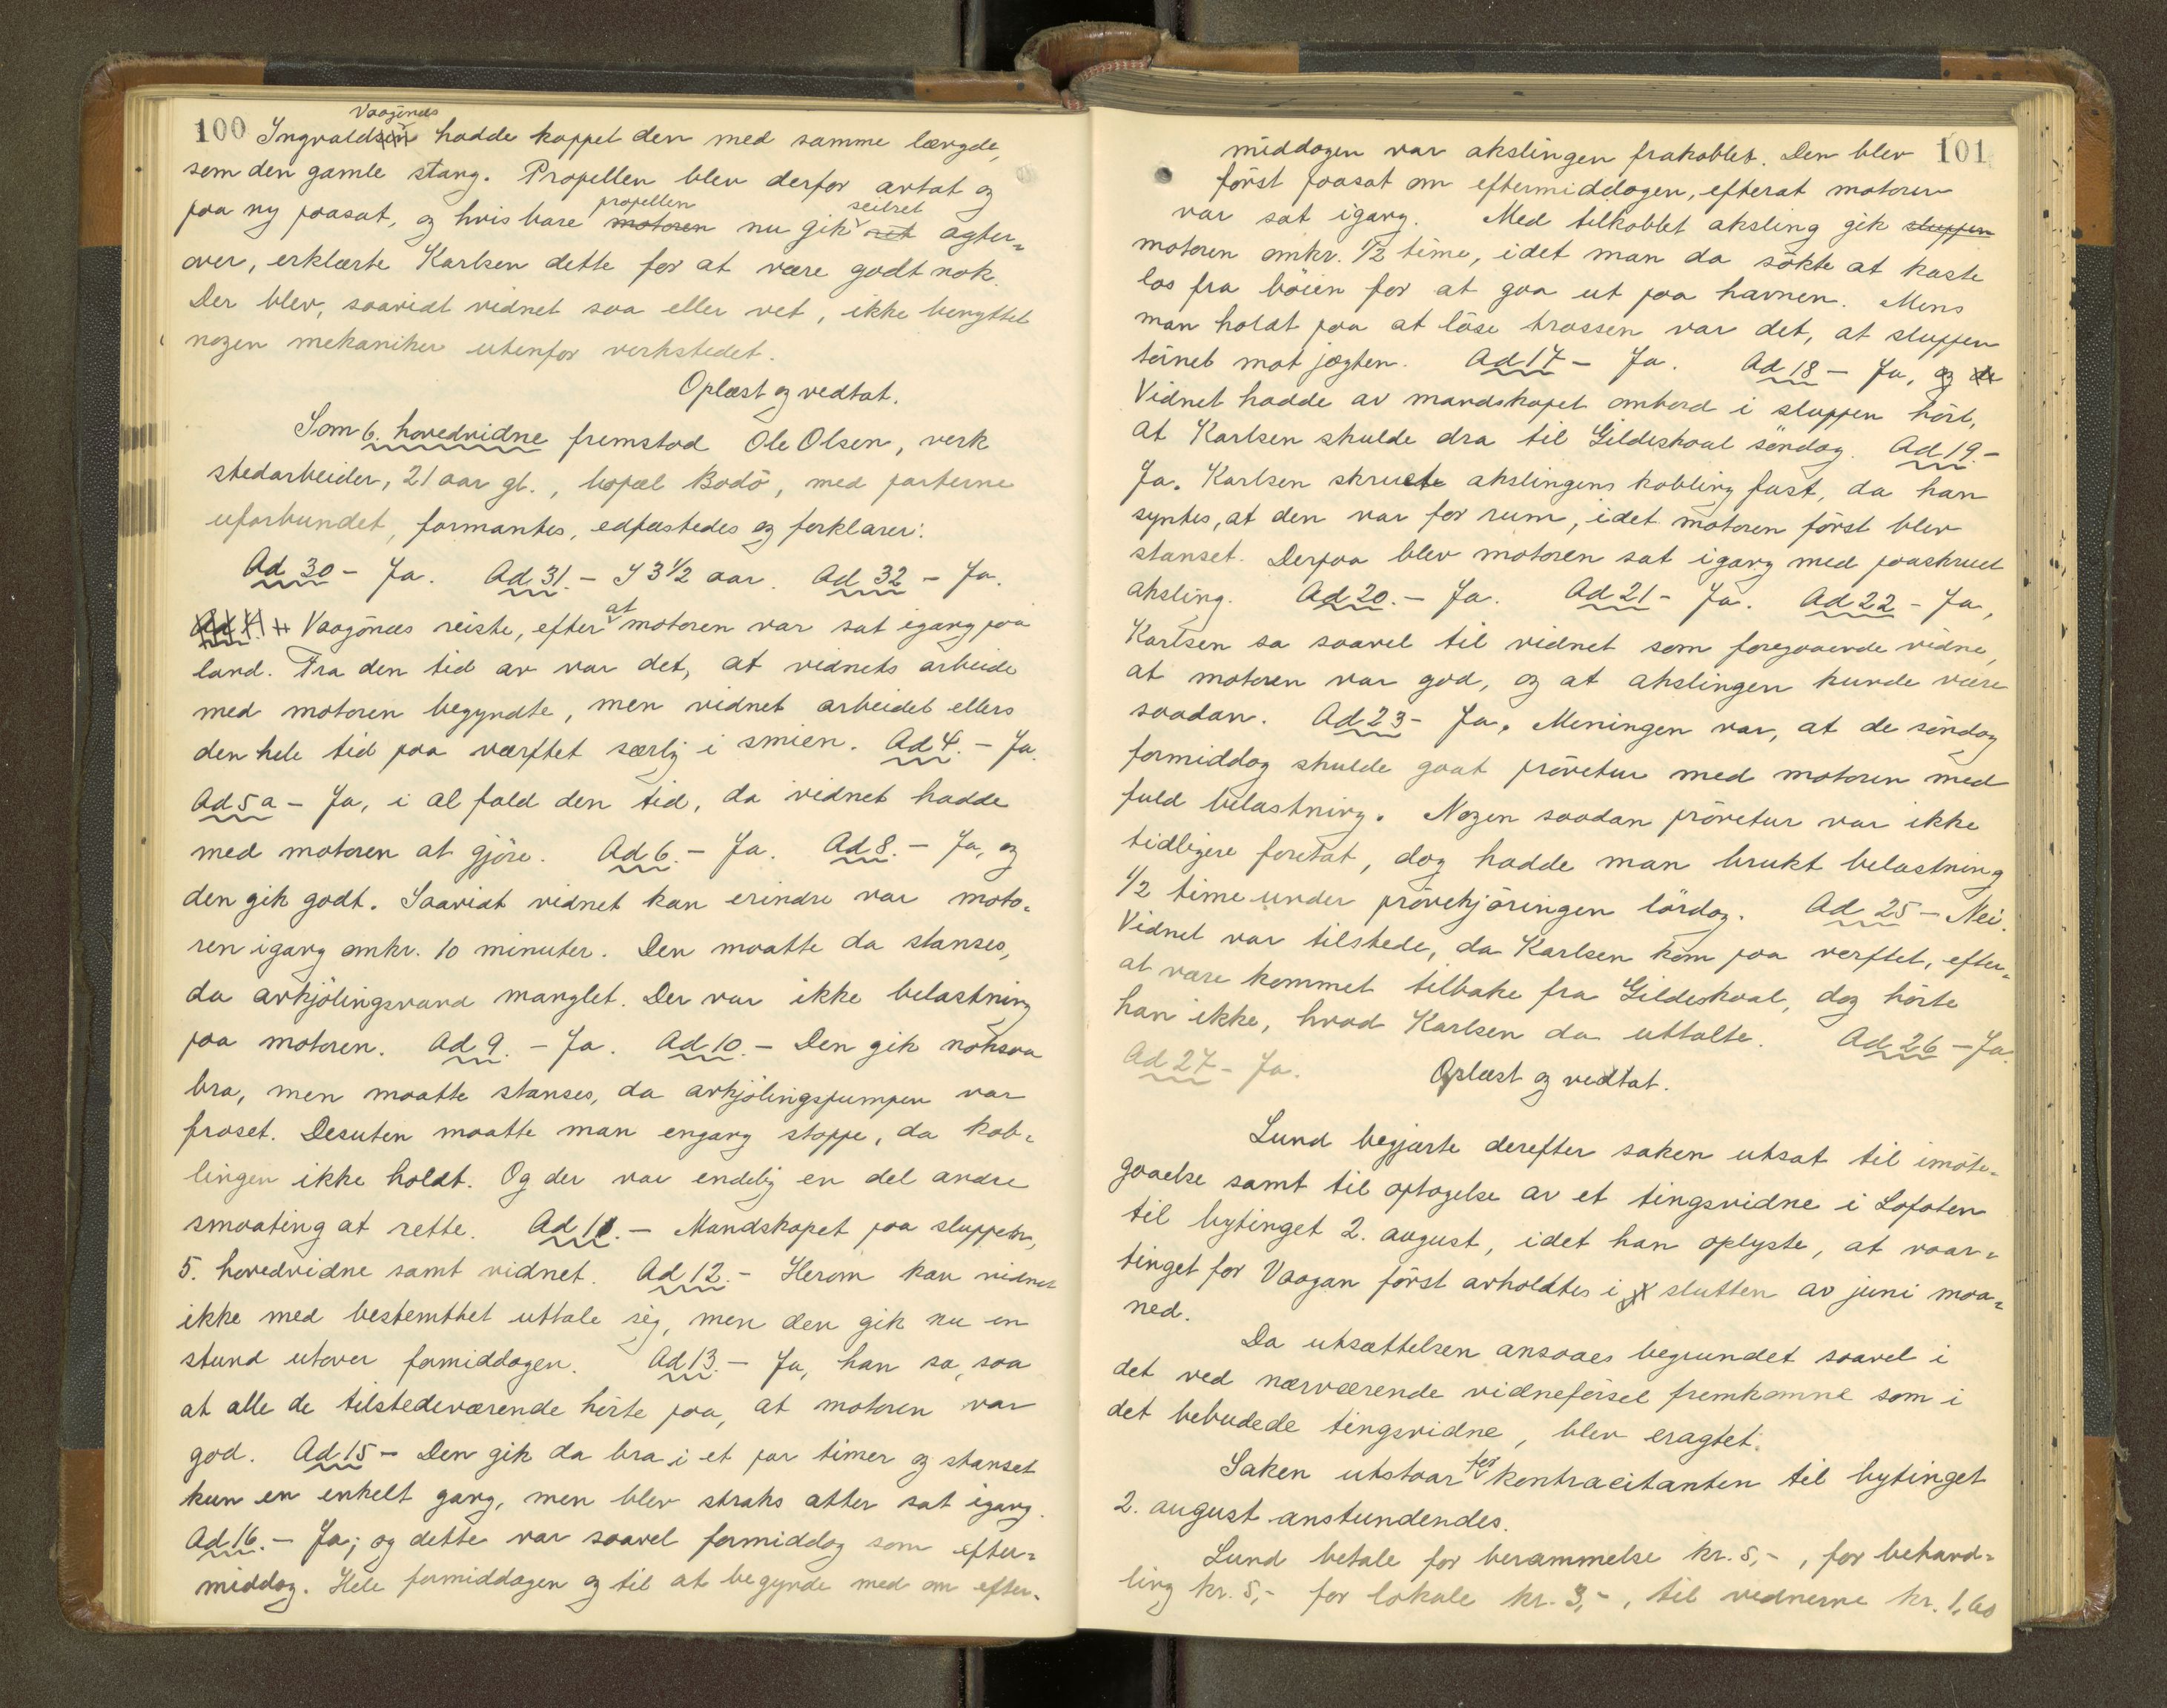 Vaagönæs
100 Ingvaldsen hadde kappet den med samme længde,
som den gamle stang. Propellen blev derfor avtat og
propellen seilret
paa ny paasat, og hvis bare motoren nu gik ret agter-
over, erklærte Karlsen dette for at være godt nok.
Der blev, saavidt vidnet saa eller vet, ikke benyttet
nogen mekaniker utenfor verkstedet.
Oplæst og vedtat.
Som 6. hovedvidne fremstod Ole Olsen, verk
stedarbeider, 21 aar gl., bopæl Bodö, med parterne
uforbundet, formantes, edfæstedes og forklarer:
Ad 30 - Ja. Ad 31. - I 3 1/2 aar. Ad 32 - Ja.
at
Vaagönæs reiste, efter motoren var sat igang paa
land. Fra den tid av var det, at vidnets arbeide
med motoren begyndte, men vidnet arbeidet ellers
den hele tid paa værftet særlig i smien. Ad 4. - Ja.
Ad 5a - Ja, i al fald den tid, da vidnet hadde
med motoren at gjöre. Ad 6. - Ja. Ad 8. - Ja, og
den gik godt. Saavidt vidnet kan erindre var moto-
ren igang omkr. 10 minuter. Den maatte da stanses,
da avkjölingsvand manglet. Der var ikke belastning
paa motoren. Ad 9. - Ja. Ad 10. - Den gik noksaa
bra, men maatte stanses, da avkjölingspumpen var
froset. Desuten maatte man engang stoppe, da kob-
lingen ikke holdt. Og der var endelig en del andre
smaating at rette. Ad 11. - Mandskapet paa sluppen,
5. hovedvidne samt vidnet. Ad 12. - Herom kan vidnet
ikke med bestemthet uttale sig, men den gik nu en
stund utover formiddagen. Ad 13. - Ja, han sa, saa
at alle de tilstedeværende hörte paa, at motoren var
god. Ad 15 - Den gik da bra i et par timer og stanset
kun en enkelt gang, men blev straks atter sat igang.
Ad 16. - Ja; og dette var saavel formiddag som efter-
middag. Hele formiddagen og til at begynde med om efter-
middagen var akslingen frakoblet. Den blev 101
först paasat om eftermiddagen, efterat motoren
var sat igang. Med tilkoblet aksling gik sluppen
motoren omkr. 1/2 time, idet man da sökte at kaste
los fra böien for at gaa ut paa havnen. Mens
man holdt paa at löse trossen var det, at sluppen
törnet mot jægten. Ad 17 - Ja. Ad 18 - Ja, og de
Vidnet hadde av mandskapet ombord i sluppen hört,
at Karlsen skulde dra til Gildeskaal söndag. Ad 19. -
Ja. Karlsen skruete akslingens kobling fast, da han
syntes, at den var for rum, idet motoren först blev
stanset. Derpaa blev motoren sat igang med paaskrued
aksling. Ad 20. - Ja. Ad 21 - Ja. Ad 22 - Ja,
Karlsen sa saavel til vidnet som foregaaende vidne,
at motoren var god, og at akslingen kunde være
saadan. Ad 23 - Ja. Meningen var, at de söndag
formiddag skulde gaat prövetur med motoren med
fuld belastning. Nogen saadan prövetur var ikke
tidligere foretat, dog hadde man brukt belastning
1/2 time under prövekjöringen lördag. Ad 25 - Nei.
Vidnet var tilstede, da Karlsen kom paa verftet, efter-
at være kommet tilbake fra Gildeskaal, dog hörte
han ikke, hvad Karlsen da uttalte. Ad 26 - Ja.
Ad 27 - Ja. Oplæst og vedtat.
Lund begjærte derefter saken utsat til imöte-
gaaelse samt til optagelse av et tingsvidne i Lofoten
til bytinget 2. august, idet han oplyste, at vaar-
tinget for Vaagan först avholdtes i slutten av juni maa-
ned.
Da utsættelsen ansaaes begrundet saavel i
det ved nærværende vidneförsel fremkomne som i
det bebudede tingsvidne, blev eragtet:
for
Saken utstaar kontracitanten til bytinget
2. august anstundendes.
Lund betale for berammelse kr. 5,-, for behand-
ling kr. 5,- for lokale kr. 3,-, til vidnerne kr. 1,60